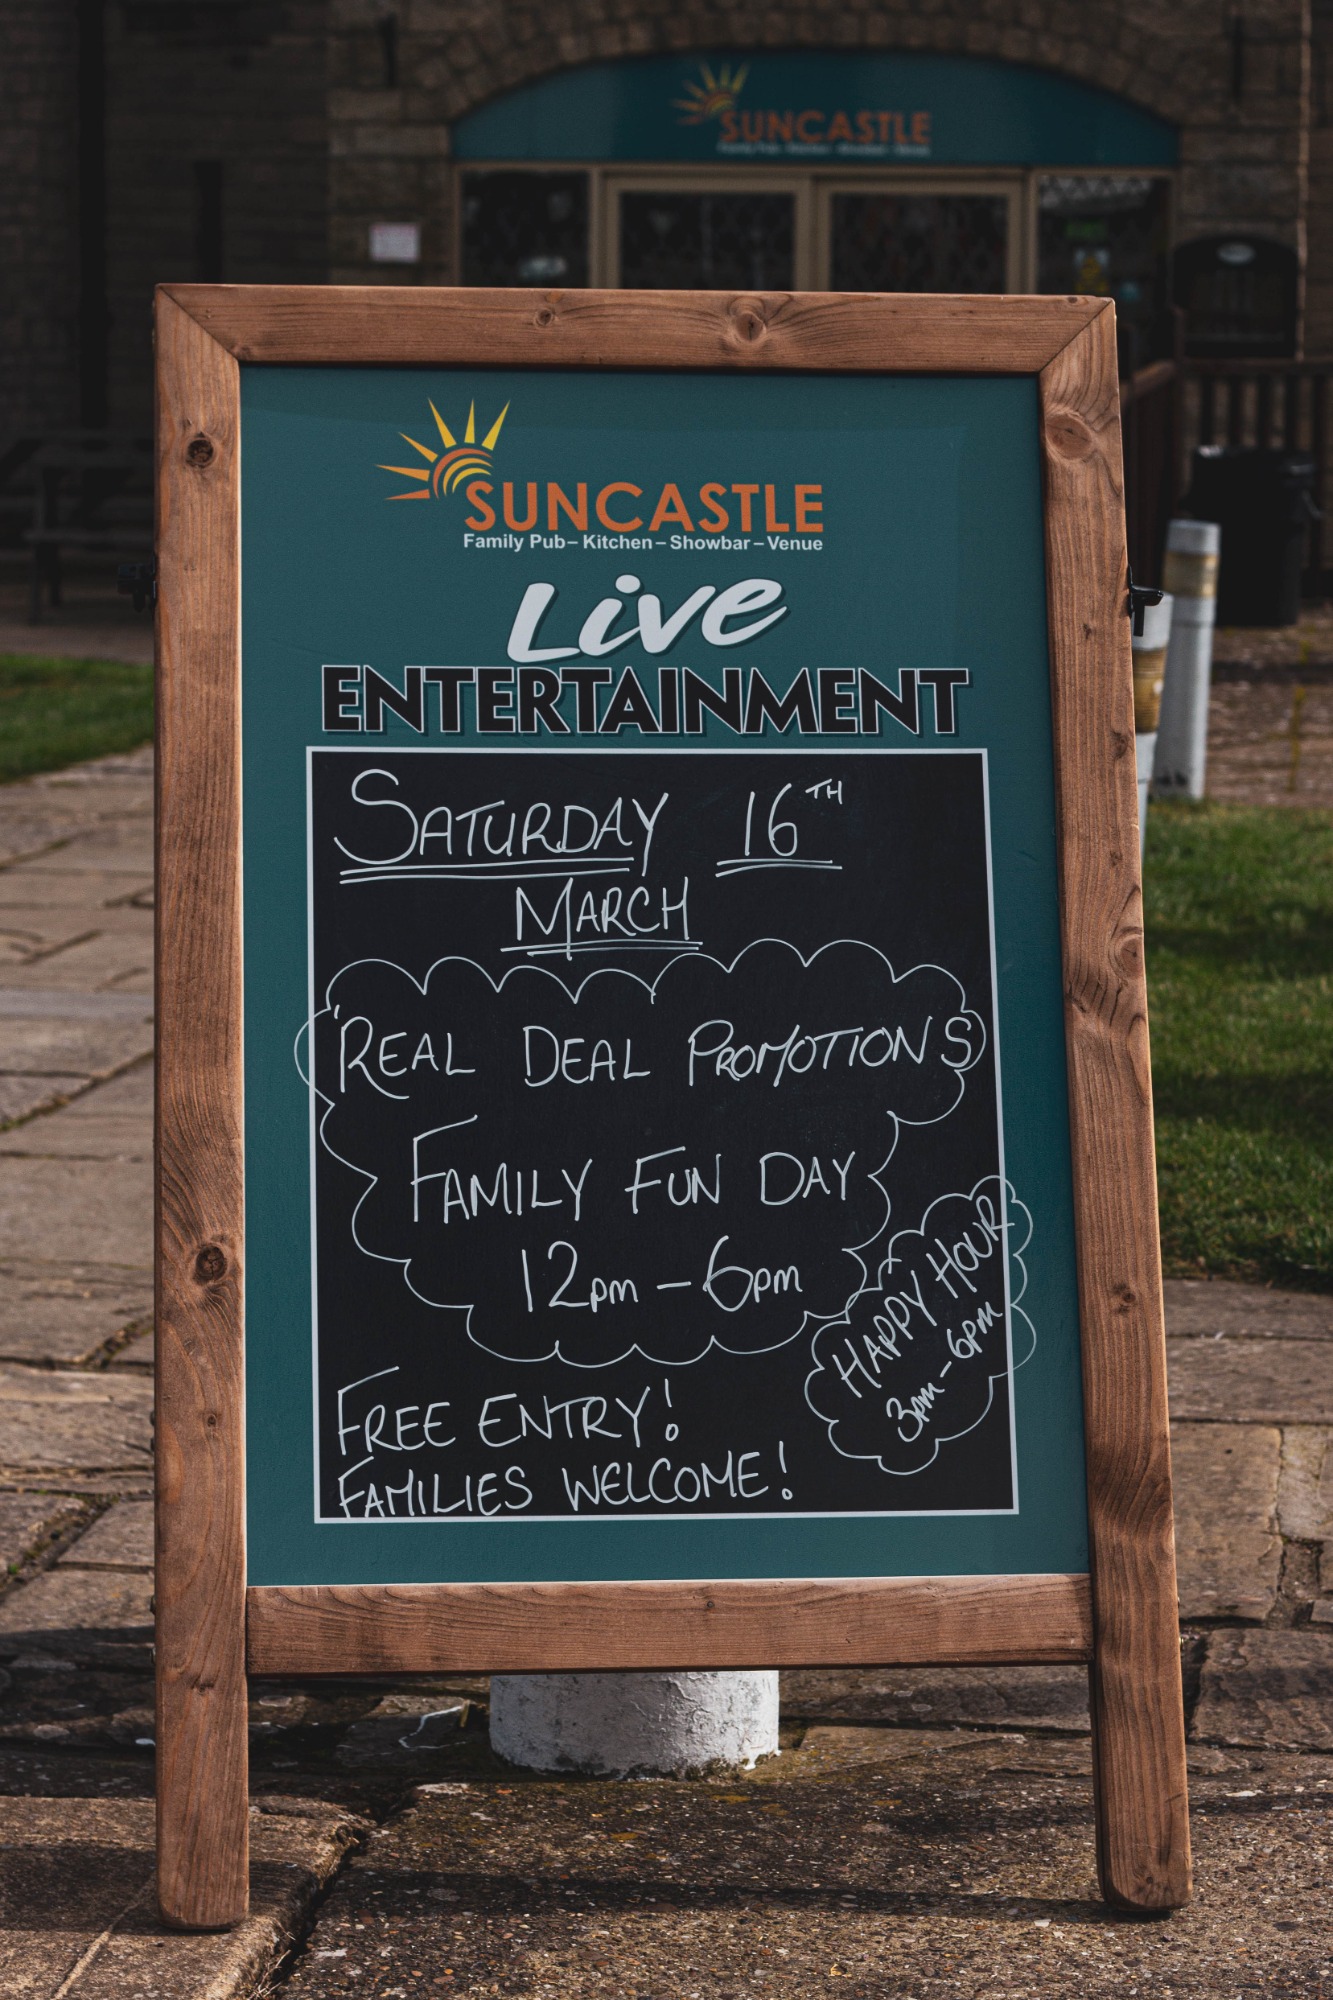 SUNCASTLE
SUNCASTLE
Family Pub – Kitchen – Showbar – Venue
Live
ENTERTAINMENT
SATURDAY 16TH
MARCH
REAL DEAL PROMOTIONS
FAMILY FUN DAY
12pm – 6pm
HAPPY HOUR
3pm – 6pm
FREE ENTRY!
FAMILIES WELCOME!